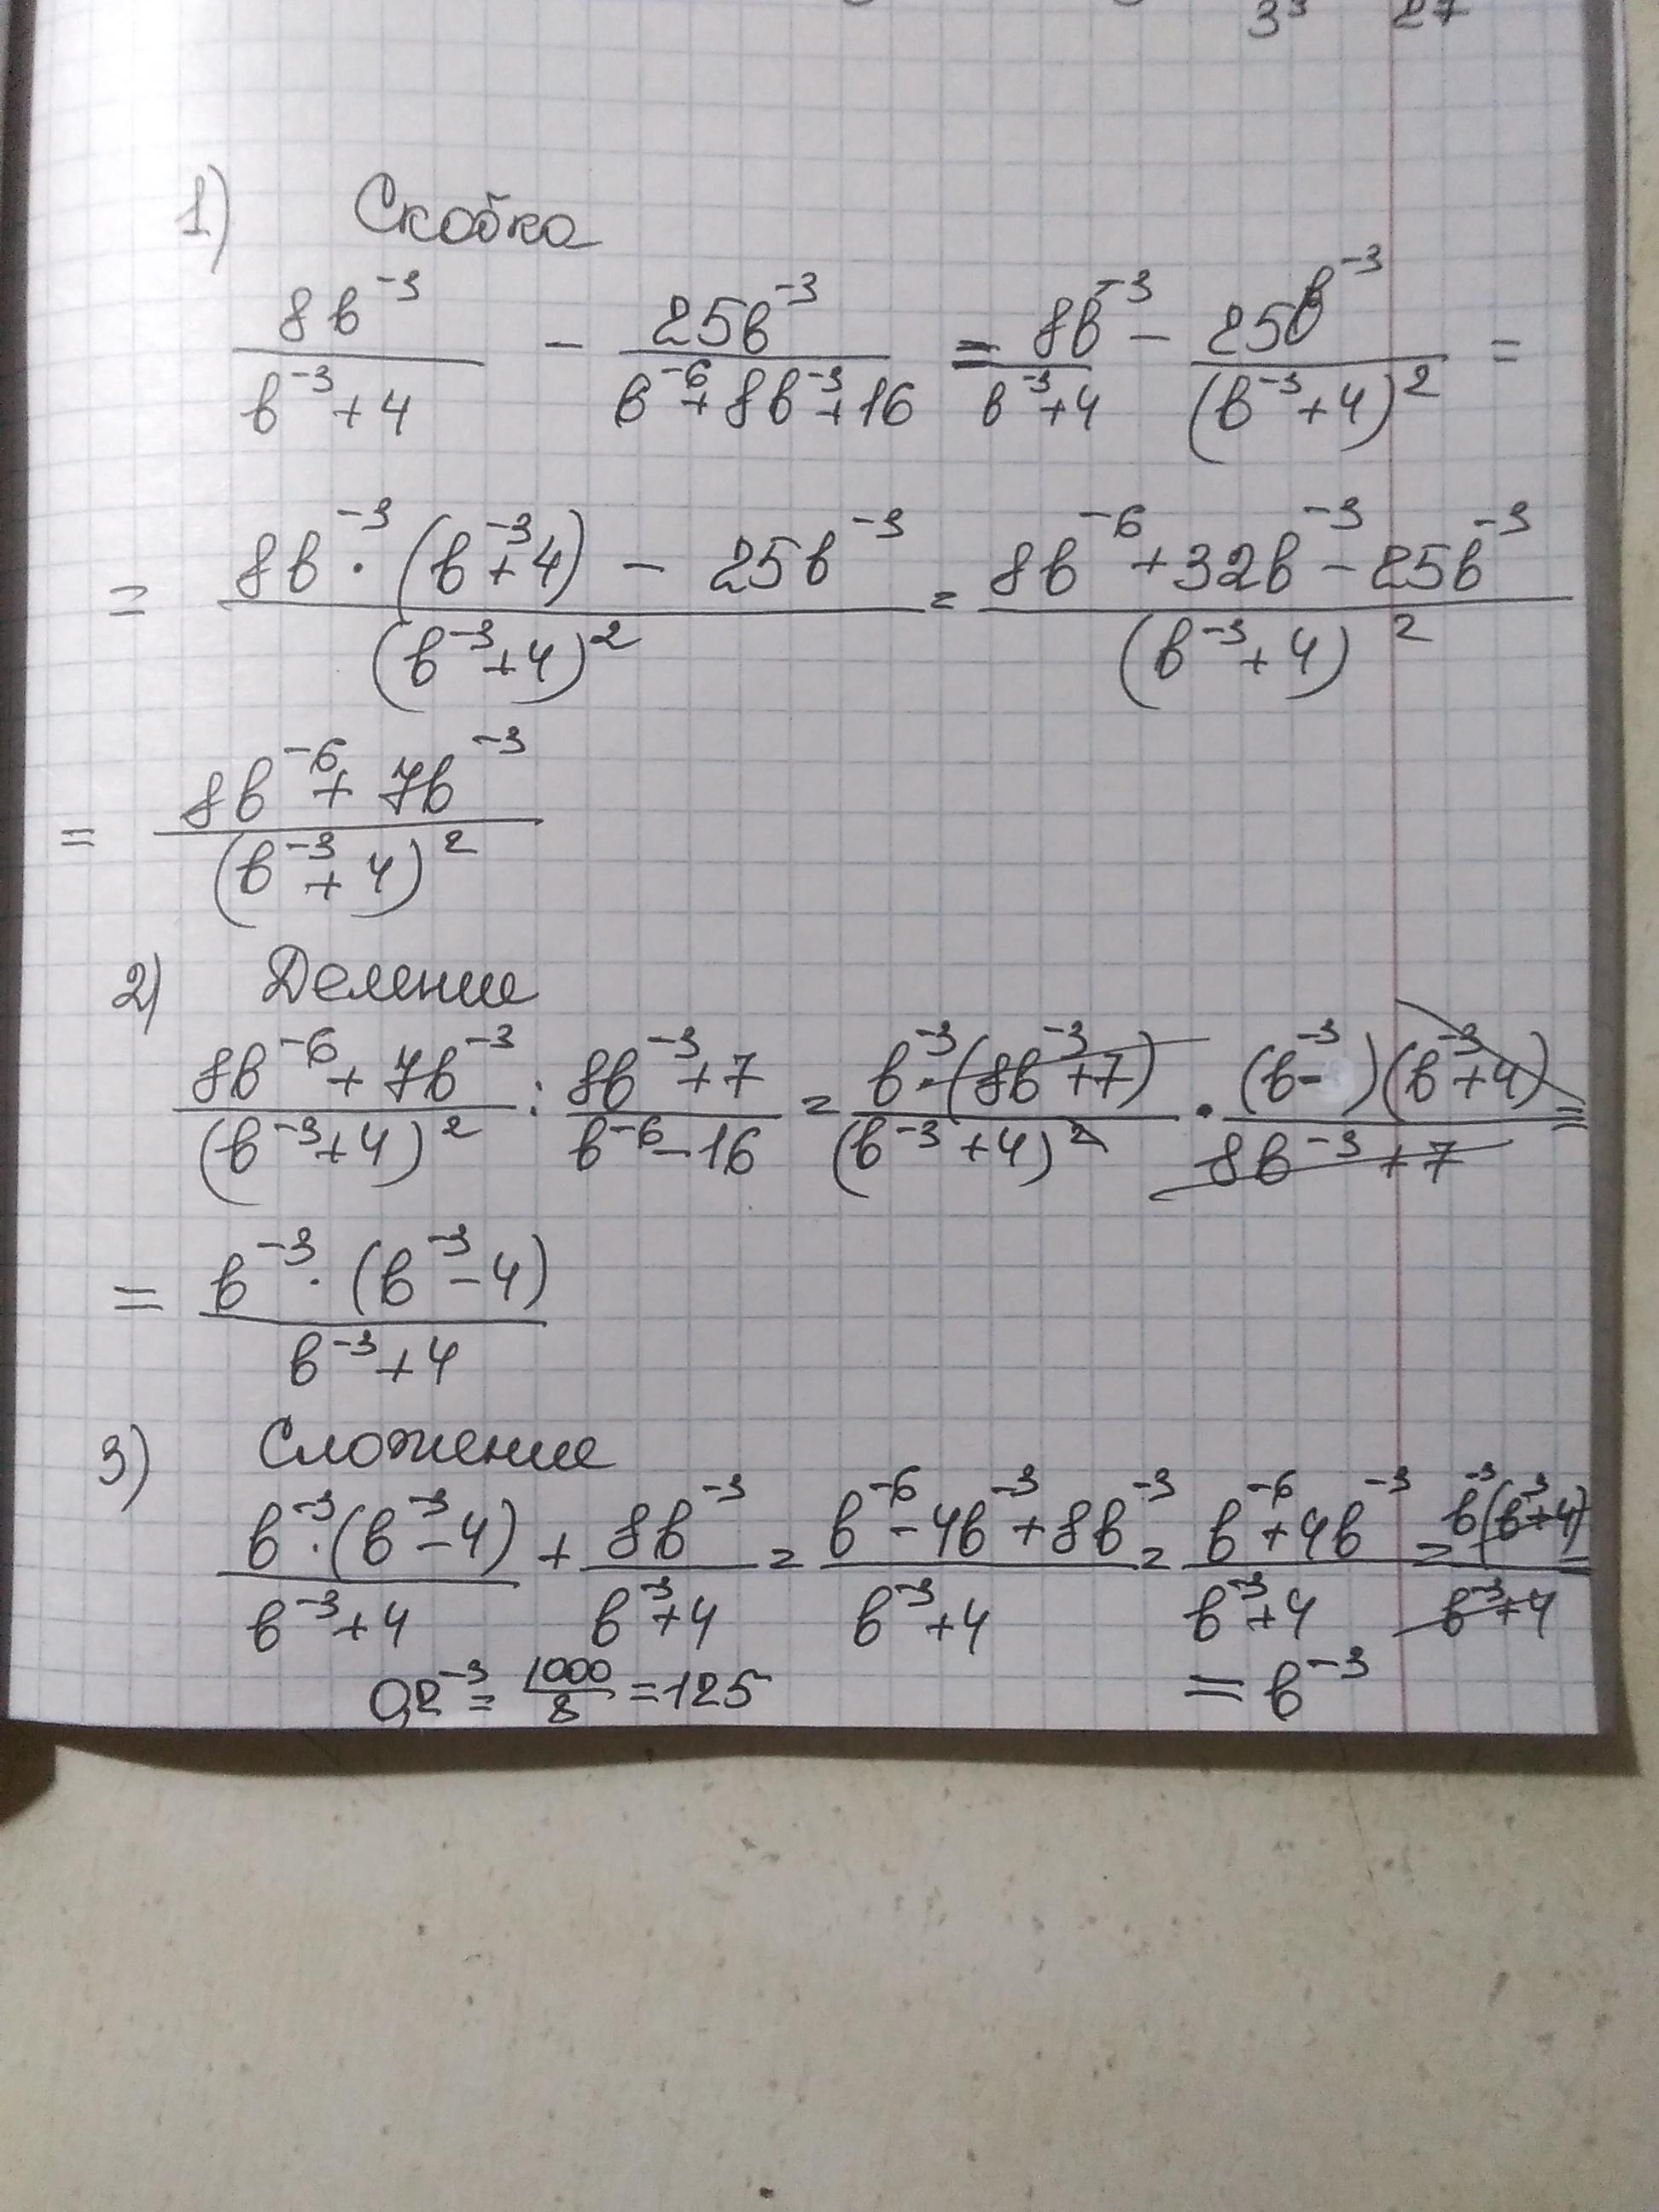 3³ 27
1) Скобка
8b⁻³/(b⁻³+4) - 25b⁻³/(b⁻⁶+8b⁻³+16) = 8b⁻³/(b⁻³+4) - 25b⁻³/(b⁻³+4)² =
= (8b⁻³·(b⁻³+4) - 25b⁻³)/(b⁻³+4)² = (8b⁻⁶+32b⁻³-25b⁻³)/(b⁻³+4)²
= (8b⁻⁶+7b⁻³)/(b⁻³+4)²
2) Деление
(8b⁻⁶+7b⁻³)/(b⁻³+4)² : (8b⁻³+7)/(b⁻⁶-16) = b⁻³·(8b⁻³+7)/(b⁻³+4)² · (b⁻³- )(b⁻³+4)/(8b⁻³+7) =
= b⁻³·(b⁻³-4)/(b⁻³+4)
3) Сложение
b⁻³·(b⁻³-4)/(b⁻³+4) + 8b⁻³/(b⁻³+4) = (b⁻⁶-4b⁻³+8b⁻³)/(b⁻³+4) = (b⁻⁶+4b⁻³)/(b⁻³+4) = b⁻³(b⁻³+4)/(b⁻³+4) =
0,2⁻³ = 1000/8 = 125 = b⁻³